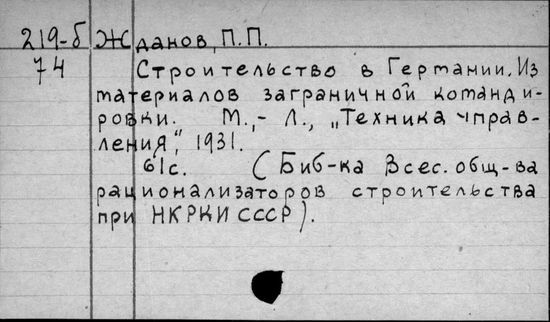 219-б Жданов, П.П.
74 Строительство в Германии. Из
материалов заграничной команди-
ровки. М.,-Л., „Техника управ-
ления", 1931.
61с. (Биб-ка Всес. общ-ва
рационализаторов строительства
при НКРКИ СССР).